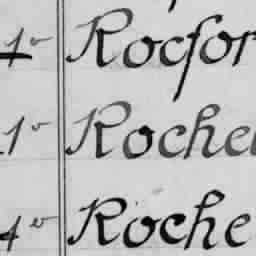 1v Rocfor
1v Roche
4v Roche